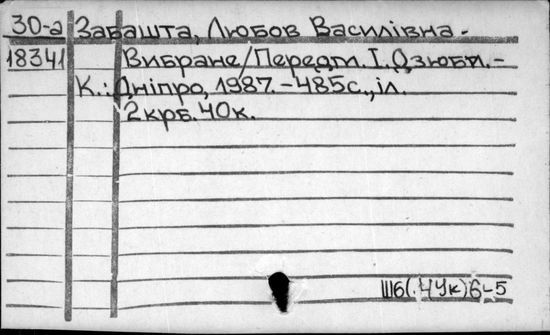 30-а Забашта, Любов Василівна.
18341 Вибране/Передм. І. Дзюби.-
К.: Дніпро, 1987.-485с., іл.
2крб. 40к.
Ш6(.4Ук)6-5